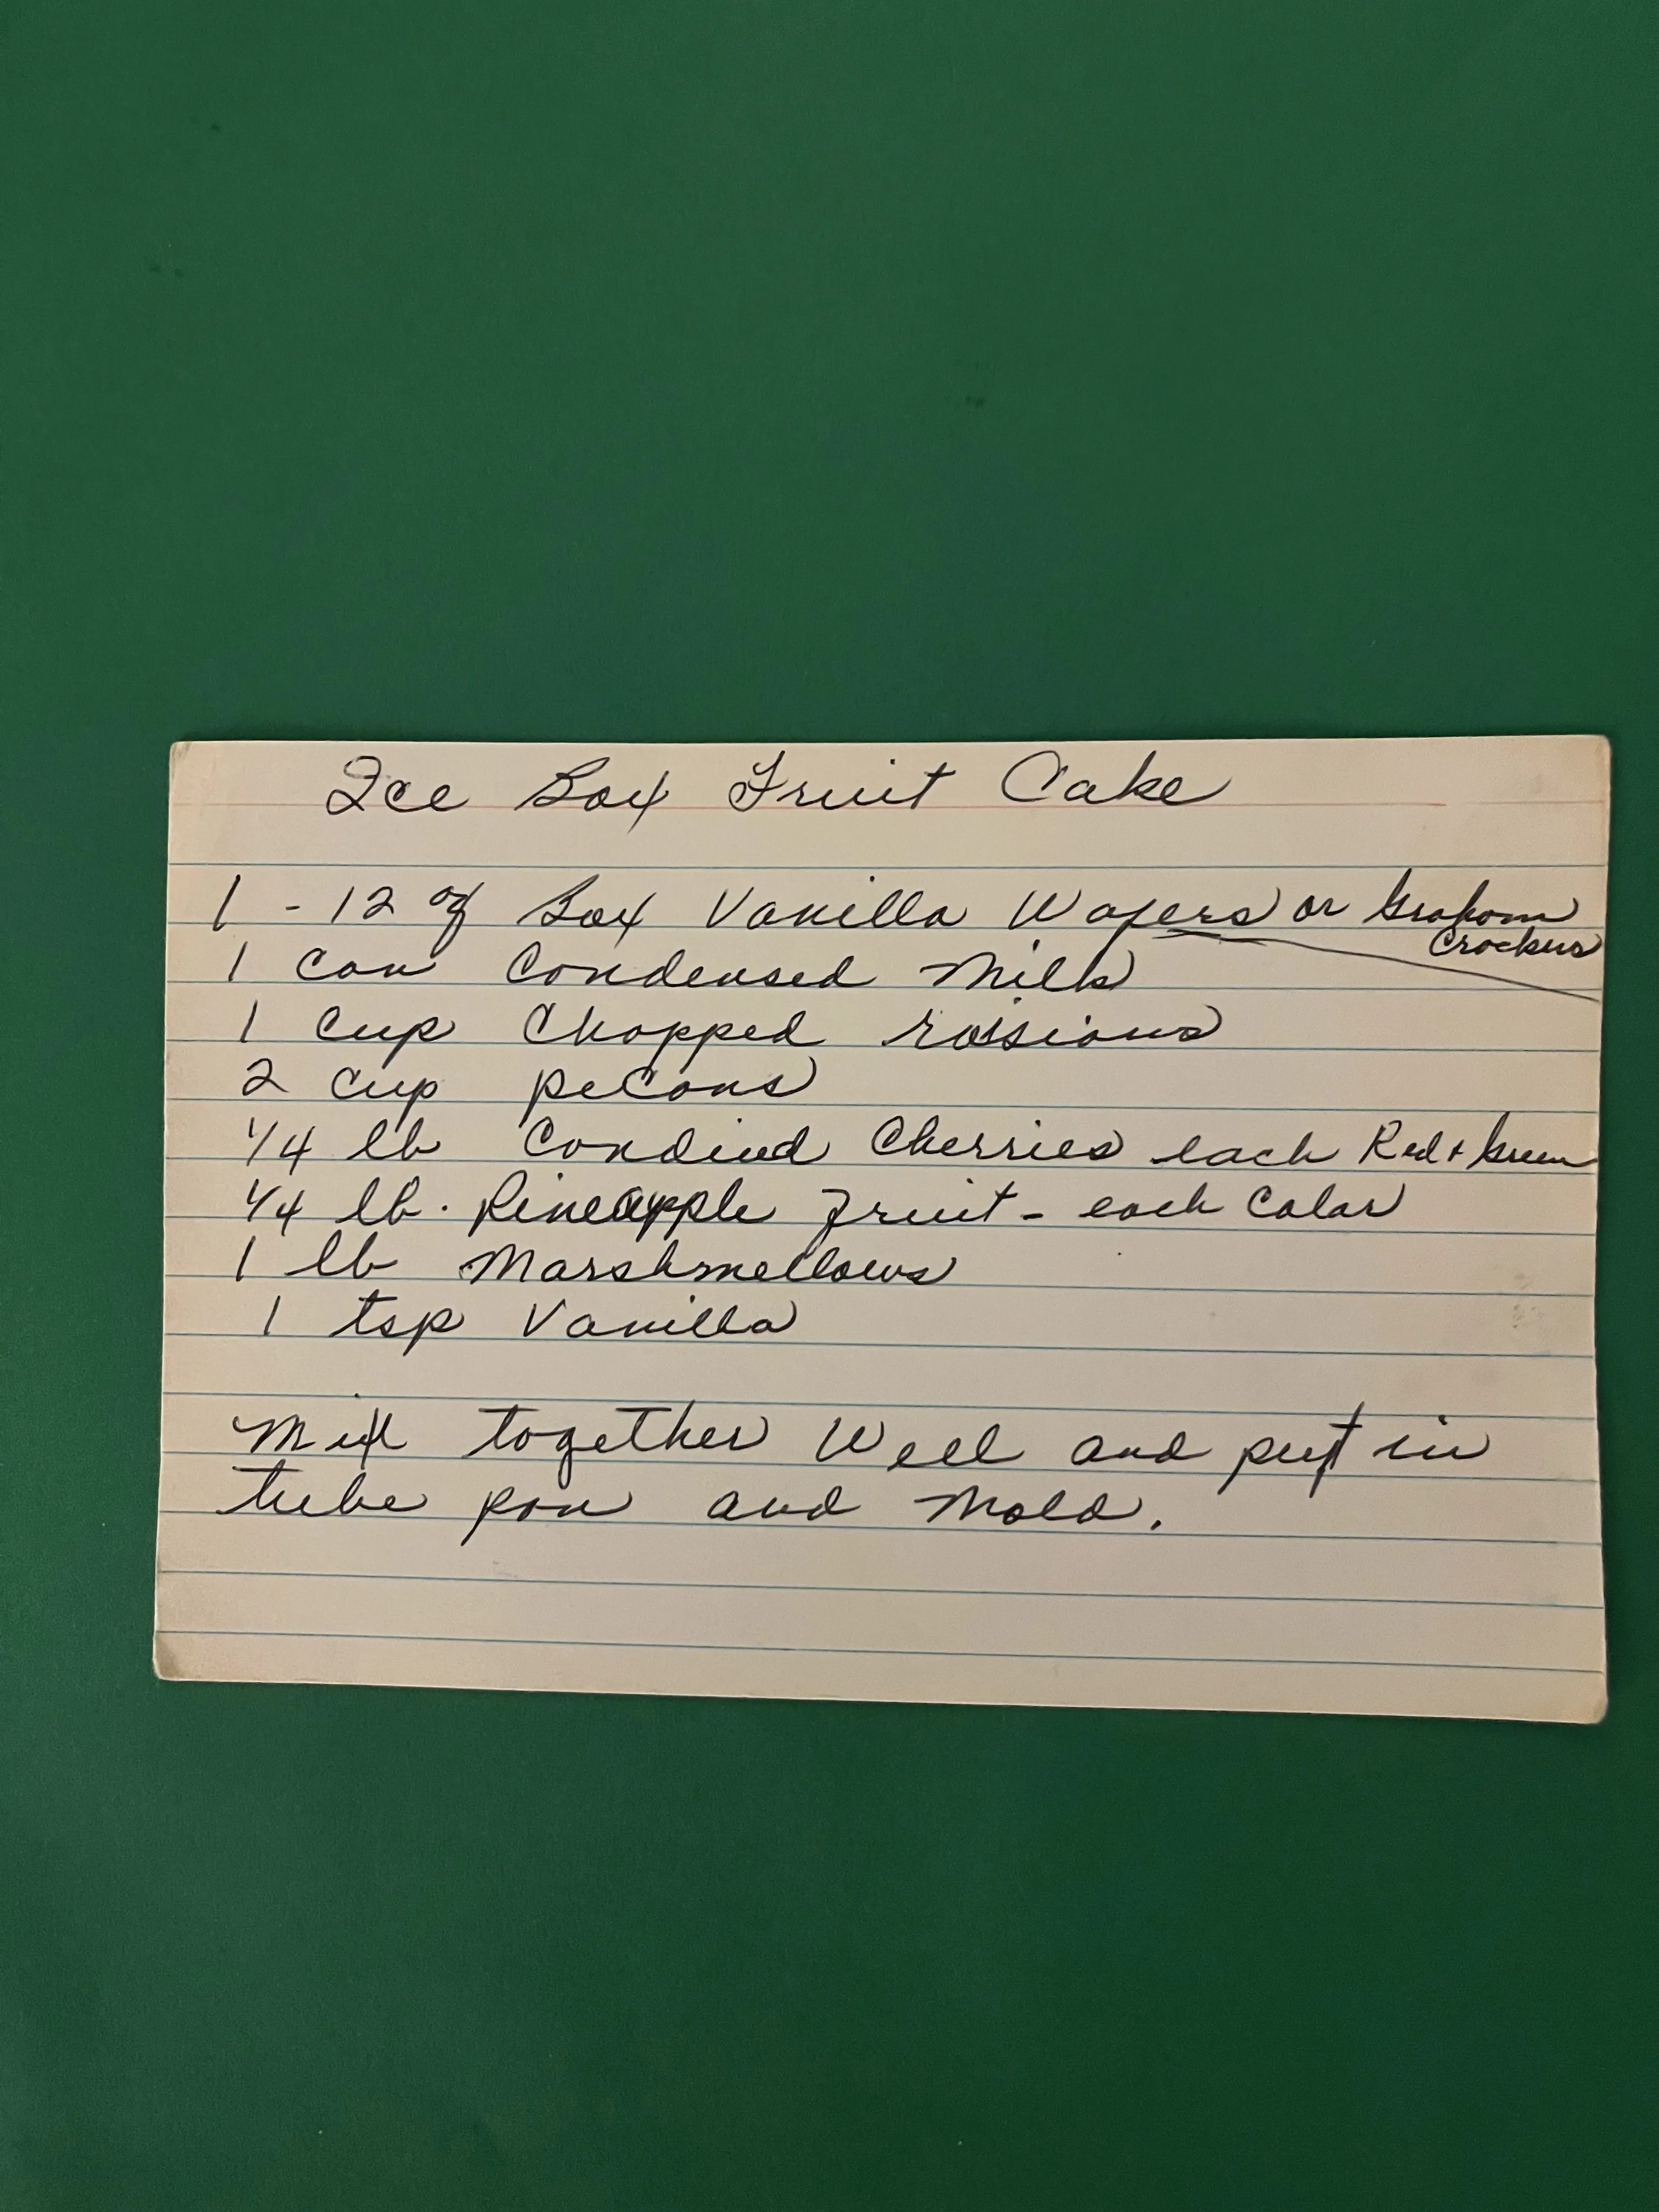 Ice Box Fruit Cake
1 - 12 oz Box Vanilla Wafers or Graham
Crackers
1 can Condensed Milk
1 cup Chopped rassians
2 cup pecans
1/4 lb Candied Cherries each Red + Green
1/4 lb. Pineapple Fruit - each Color
1 lb Marshmellows
1 tsp Vanilla
Mix together Well and put in
tube pan and Mold.